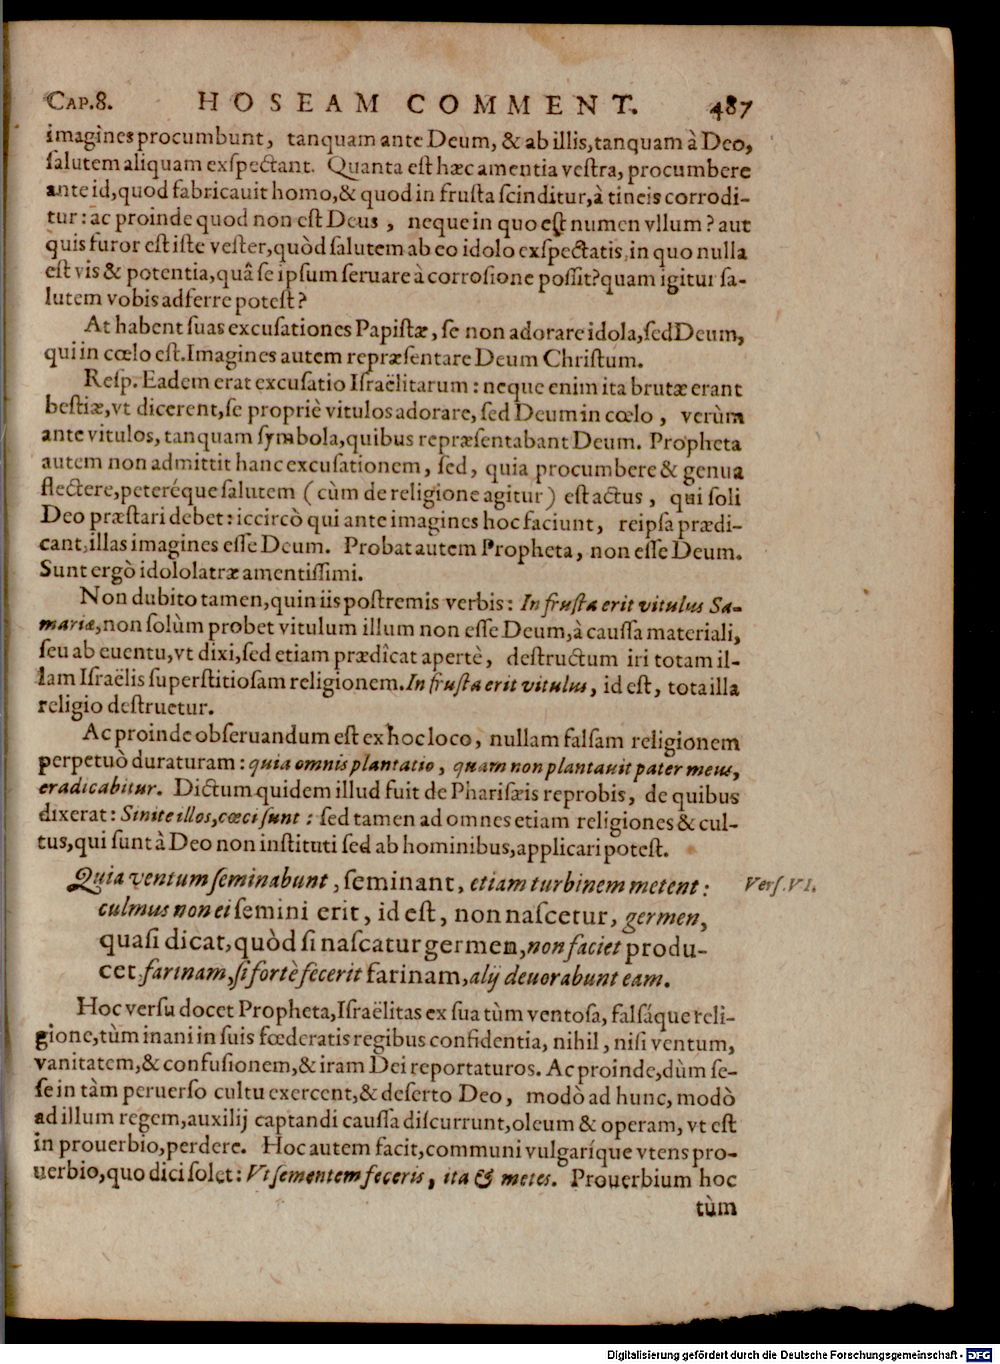 CAP.8. HOSEAM COMMENT. 487
imagines procumbunt, tanquam ante Deum, & ab illis, tanquam à Deo,
ſalutem aliquam exſpectant. Quanta eſt hæc amentia veſtra, procumbere
ante id, quod fabricauit homo, & quod in fruſta ſcinditur, à tineis corrodi-
tur: ac proinde quod non eſt Deus, neque in quo eſt numen vllum? aut
quis furor eſt iſte veſter, quòd ſalutem ab eo idolo exſpectatis, in quo nulla
eſt vis & potentia, quâ ſe ipſum ſeruare à corroſione poſſit? quam igitur ſa-
lutem vobis adferre poteſt?
At habent ſuas excuſationes Papiſtæ, ſe non adorare idola, ſed Deum,
qui in cœlo eſt. Imagines autem repræſentare Deum Chriſtum.
Reſp. Eadem erat excuſatio Iſraëlitarum: neque enim ita brutæ erant
beſtiæ, vt dicerent, ſe propriè vitulos adorare, ſed Deum in cœlo, verùm
ante vitulos, tanquam ſymbola, quibus repræſentabant Deum. Propheta
autem non admittit hanc excuſationem, ſed, quia procumbere & genua
flectere, peteréque ſalutem (cùm de religione agitur) eſt actus, qui ſoli
Deo præſtari debet: iccircò qui ante imagines hoc faciunt, reipſa prædi-
cant, illas imagines eſſe Deum. Probat autem Propheta, non eſſe Deum.
Sunt ergò idololatræ amentiſſimi.
Non dubito tamen, quin iis poſtremis verbis: In fruſta erit vitulus Sa-
mariæ, non ſolùm probet vitulum illum non eſſe Deum, à cauſſa materiali,
ſeu ab euentu, vt dixi, ſed etiam prædicat apertè, deſtructum iri totam il-
lam Iſraëlis ſuperſtitioſam religionem. In fruſta erit vitulus, id eſt, tota illa
religio deſtruetur.
Ac proinde obſeruandum eſt ex hoc loco, nullam falſam religionem
perpetuò duraturam: quia omnis plantatio, quam non plantauit pater meus,
eradicabitur. Dictum quidem illud fuit de Phariſæis reprobis, de quibus
dixerat: Sinite illos, cœci ſunt: ſed tamen ad omnes etiam religiones & cul-
tus, qui ſunt à Deo non inſtituti ſed ab hominibus, applicari poteſt.
Quia ventum ſeminabunt, ſeminant, etiam turbinem metent: Verſ. VI.
culmus non ei ſemini erit, id eſt, non naſcetur, germen,
quaſi dicat, quòd ſi naſcatur germen, non faciet produ-
cet farinam, ſi fortè fecerit farinam, alij deuorabunt eam.
Hoc verſu docet Propheta, Iſraëlitas ex ſua tùm ventoſa, falſáque reli-
gione, tùm inani in ſuis fœderatis regibus confidentia, nihil, niſi ventum,
vanitatem, & confuſionem, & iram Dei reportaturos. Ac proinde, dùm ſe-
ſe in tàm peruerſo cultu exercent, & deſerto Deo, modò ad hunc, modò
ad illum regem, auxilij captandi cauſſa diſcurrunt, oleum & operam, vt eſt
in prouerbio, perdere. Hoc autem facit, communi vulgaríque vtens pro-
uerbio, quo dici ſolet: Vt ſementem feceris, ita & metes. Prouerbium hoc
tùm
Digitalisierung gefördert durch die Deutsche Forschungsgemeinschaft - DFG